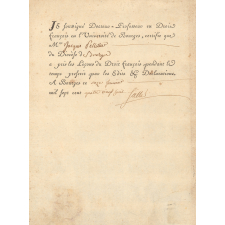 JE soussigné Docteur & Professeur en Droit
François en l'Université de Bourges, certifie que
Mre Jacques
du Diocèse de Bourges
a pris les Leçons du Droit François pendant le
temps prescrit pour les Edits & Déclarations.
A Bourges ce
mil sept cent quatre vingt